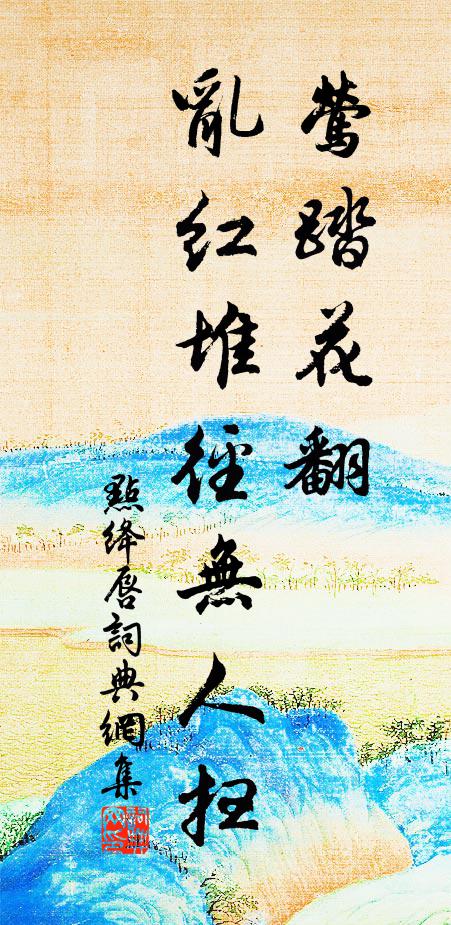 鶯踏花翻
亂紅堆徑無人掃
點絳唇詞典網集